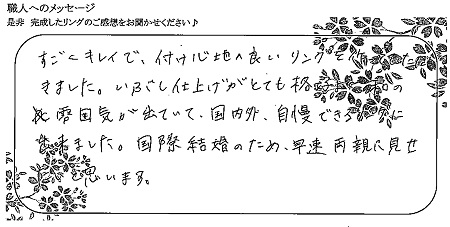 職人へのメッセージ
是非 完成したリングのご感想をお聞かせください♪
すごくキレイで、付け心地の良いリングを作
きました。いぶし仕上げがとても格 和の
雰囲気が出ていて、国内外、自慢できる
出来ました。国際結婚のため、早速両親に見せ
と思います。